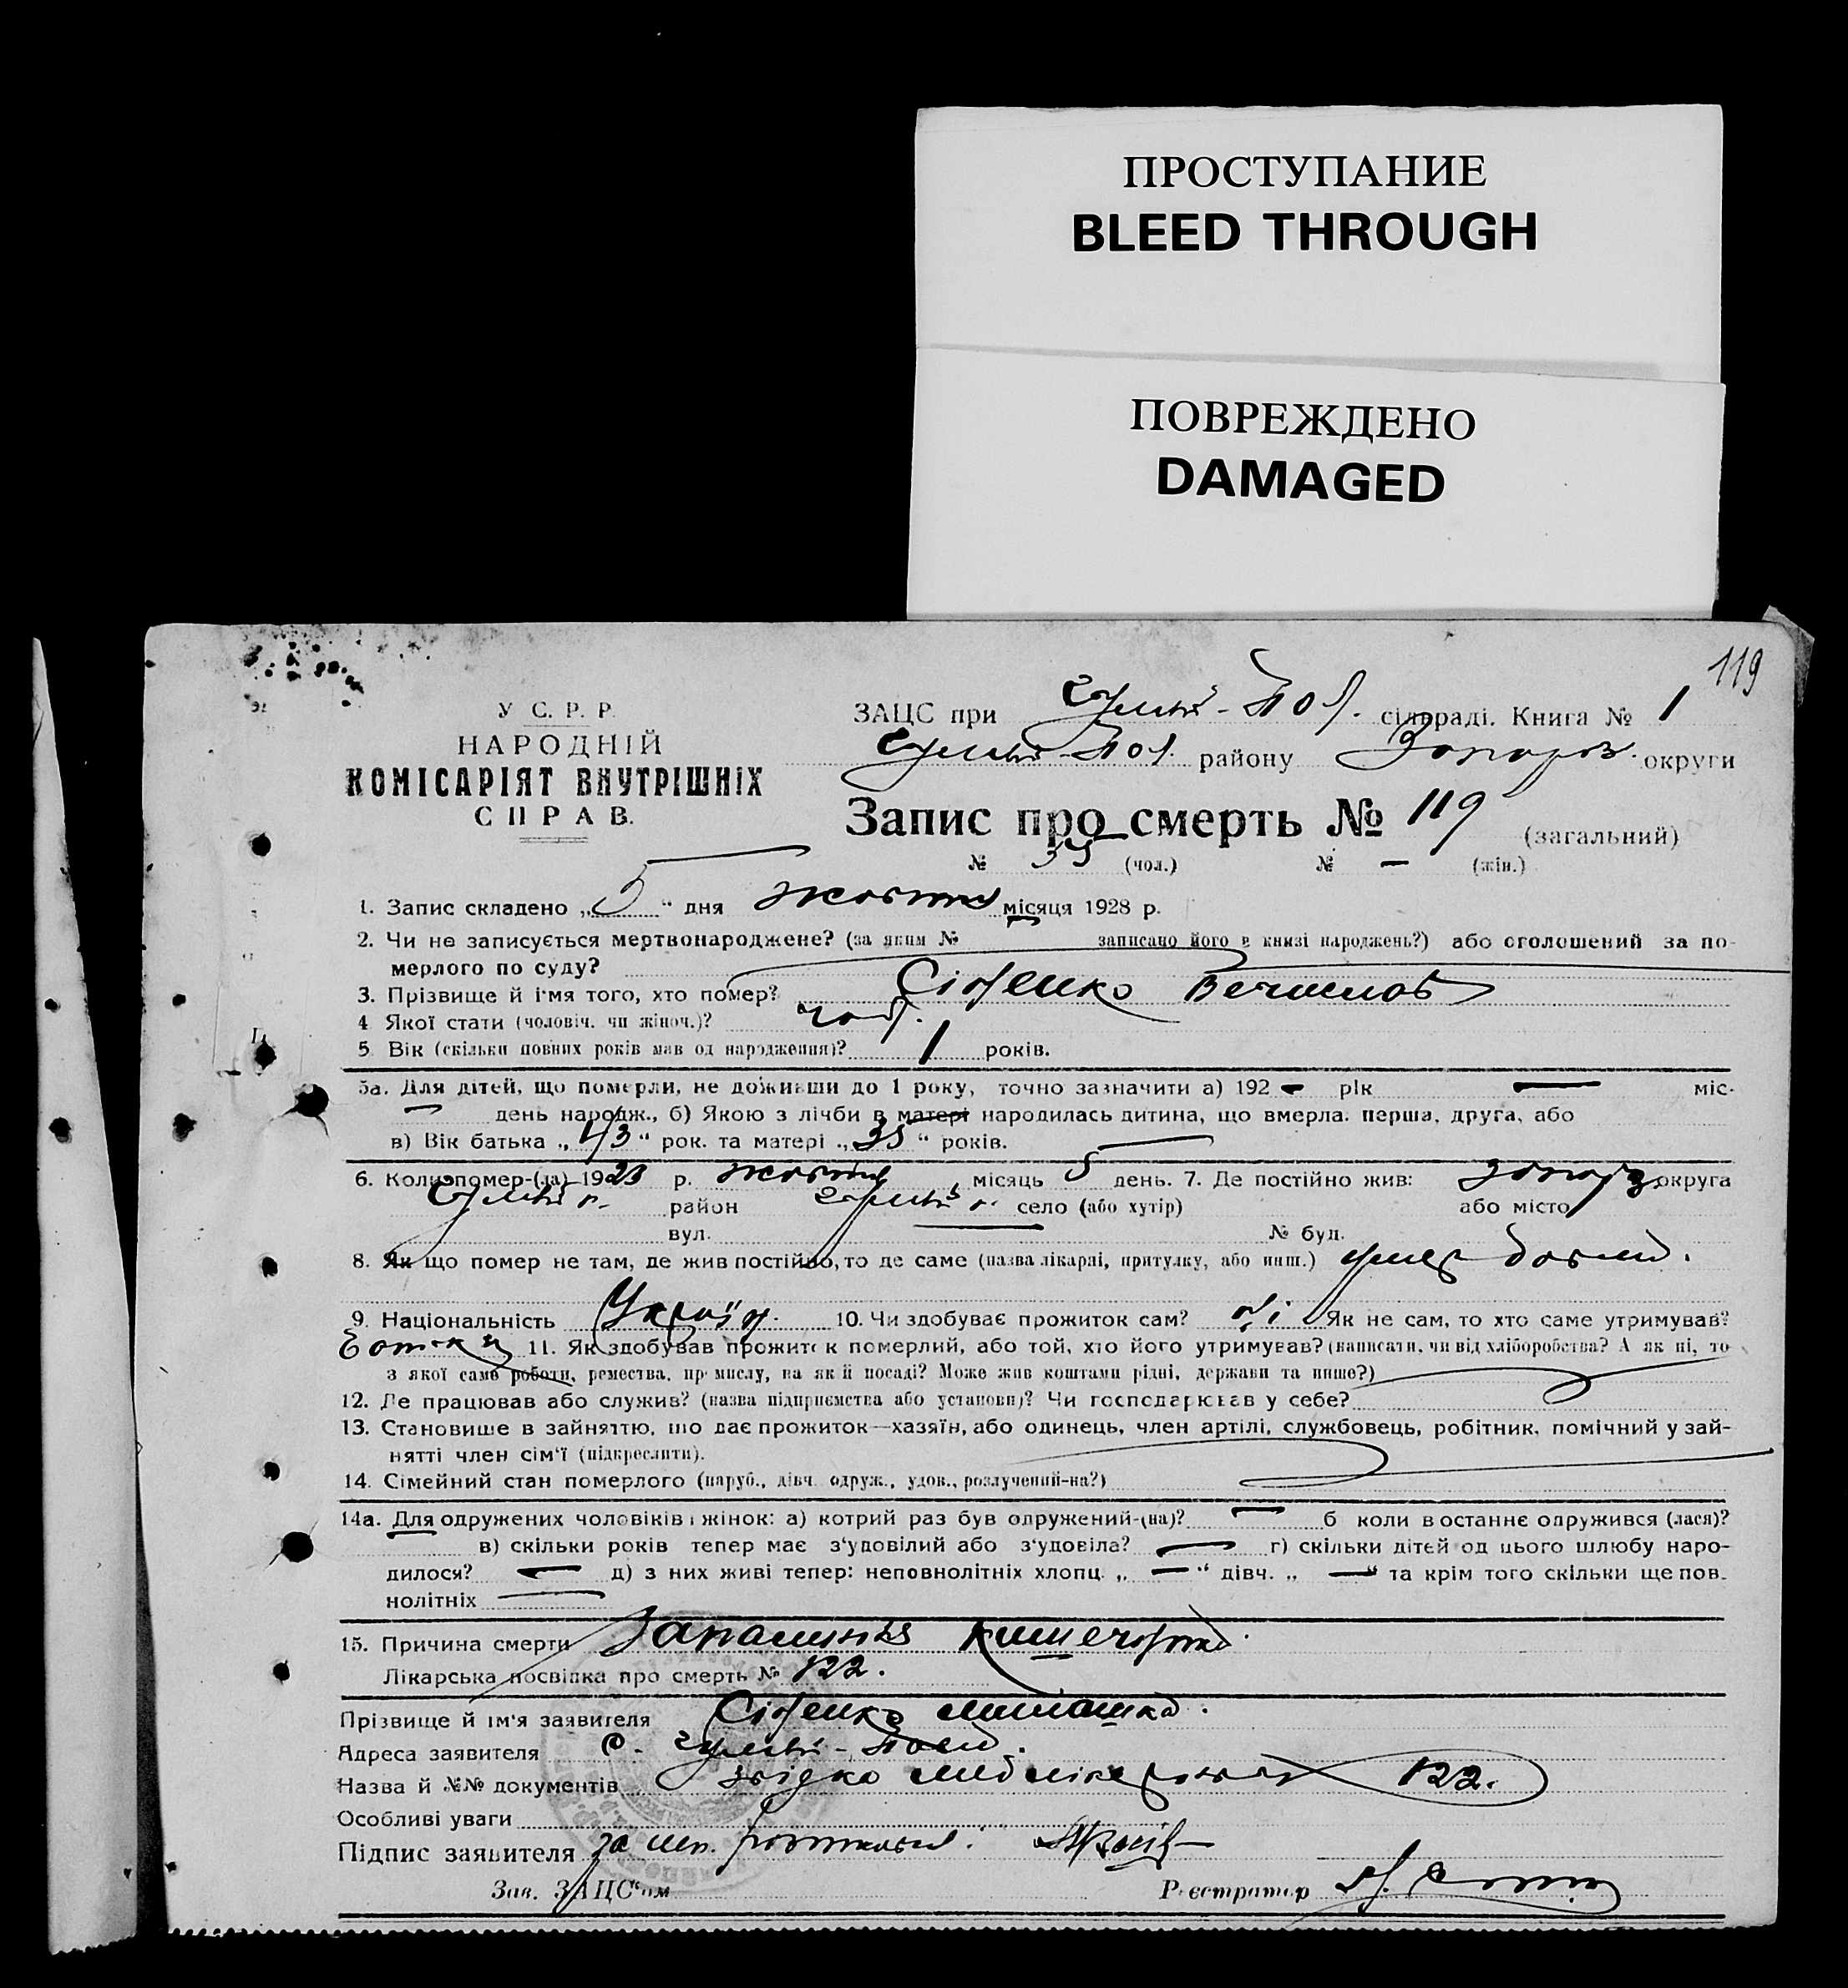 ПРОСТУПАНИЕ
BLEED THROUGH
ПОВРЕЖДЕНО
DAMAGED
119
У С. Р. Р.
НАРОДНІЙ
КОМІСАРІЯТ ВНУТРІШНІХ
СПРАВ.
ЗАЦС при Гуляй-Пол. сільраді. Книга № 1
Гуляй-Пол. району Запоріз. округи
Запис про смерть № 119 (загальний)
№ 55 (чол.) № — (жін.)
1. Запис складено „ 5 “ дня жовтня місяця 1928 р.
2. Чи не записується мертвонароджене? (за яким № записано його в книзі народжень?) або оголошений за по-
мерлого по суду?
3. Прізвище й ім'я того, хто помер? Сіденко
4 Якої стати (чоловіч. чи жіноч.)? чол.
5. Вік (скільки повних років мав од народження)? 1 років.
5а. Для дітей, що померли, не доживши до 1 року, точно зазначити а) 192 — рік — міс.
— день народж., б) Якою з лічби в матері народилась дитина, що вмерла. перша, друга, або
в) Вік батька „ 43 “ рок. та матері „ 35 “ років.
6. Коли помер-(ла) 1928 р. жовтня місяць 5 день. 7. Де постійно жив: Запоріз округа
Гуляй п. район Гуляй п. село (або хутір) або місто
вул. — № буд.
8. Якщо помер не там, де жив постійно, то де саме (назва лікарні, притулку, або инш.) умер дома.
9. Національність Україн. 10. Чи здобуває прожиток сам? ні Як не сам, то хто саме утримував?
Батьки 11. Як здобував прожиток померлий, або той, хто його утримував? (написати, чи від хліборобства? А як ні, то
з якої саме роботи, ремества, промислу, на якій посаді? Може жив коштами рідні, держави та инше?)
12. Де працював або служив? (назва підприємства або установи)? Чи господарював у себе?
13. Становище в зайняттю, що дає прожиток—хазяїн, або одинець, член артілі, службовець, робітник, помічний у зай-
нятті член сім'ї (підкреслити).
14. Сімейний стан померлого (паруб., дівч. одруж., удов., розлучений-на?)
14а. Для одружених чоловіків і жінок: а) котрий раз був одружений-(на)? — б коли востаннє одружився (лася)?
в) скільки років тепер має з'удовілий або з'удовіла? — г) скільки дітей од цього шлюбу наро-
дилося? — д) з них живі тепер: неповнолітніх хлопц. „ — “ дівч. „ — “ та крім того скільки ще пов-
нолітніх —
15. Причина смерти Запалення
Лікарська посвідка про смерть № 122.
Прізвище й ім'я заявителя Сіденко
Адреса заявителя с. Гуляй-Поле.
Назва й №№ документів 122.
Особливі уваги
Підпис заявителя
Зав. ЗАЦС'ом Реєстратор